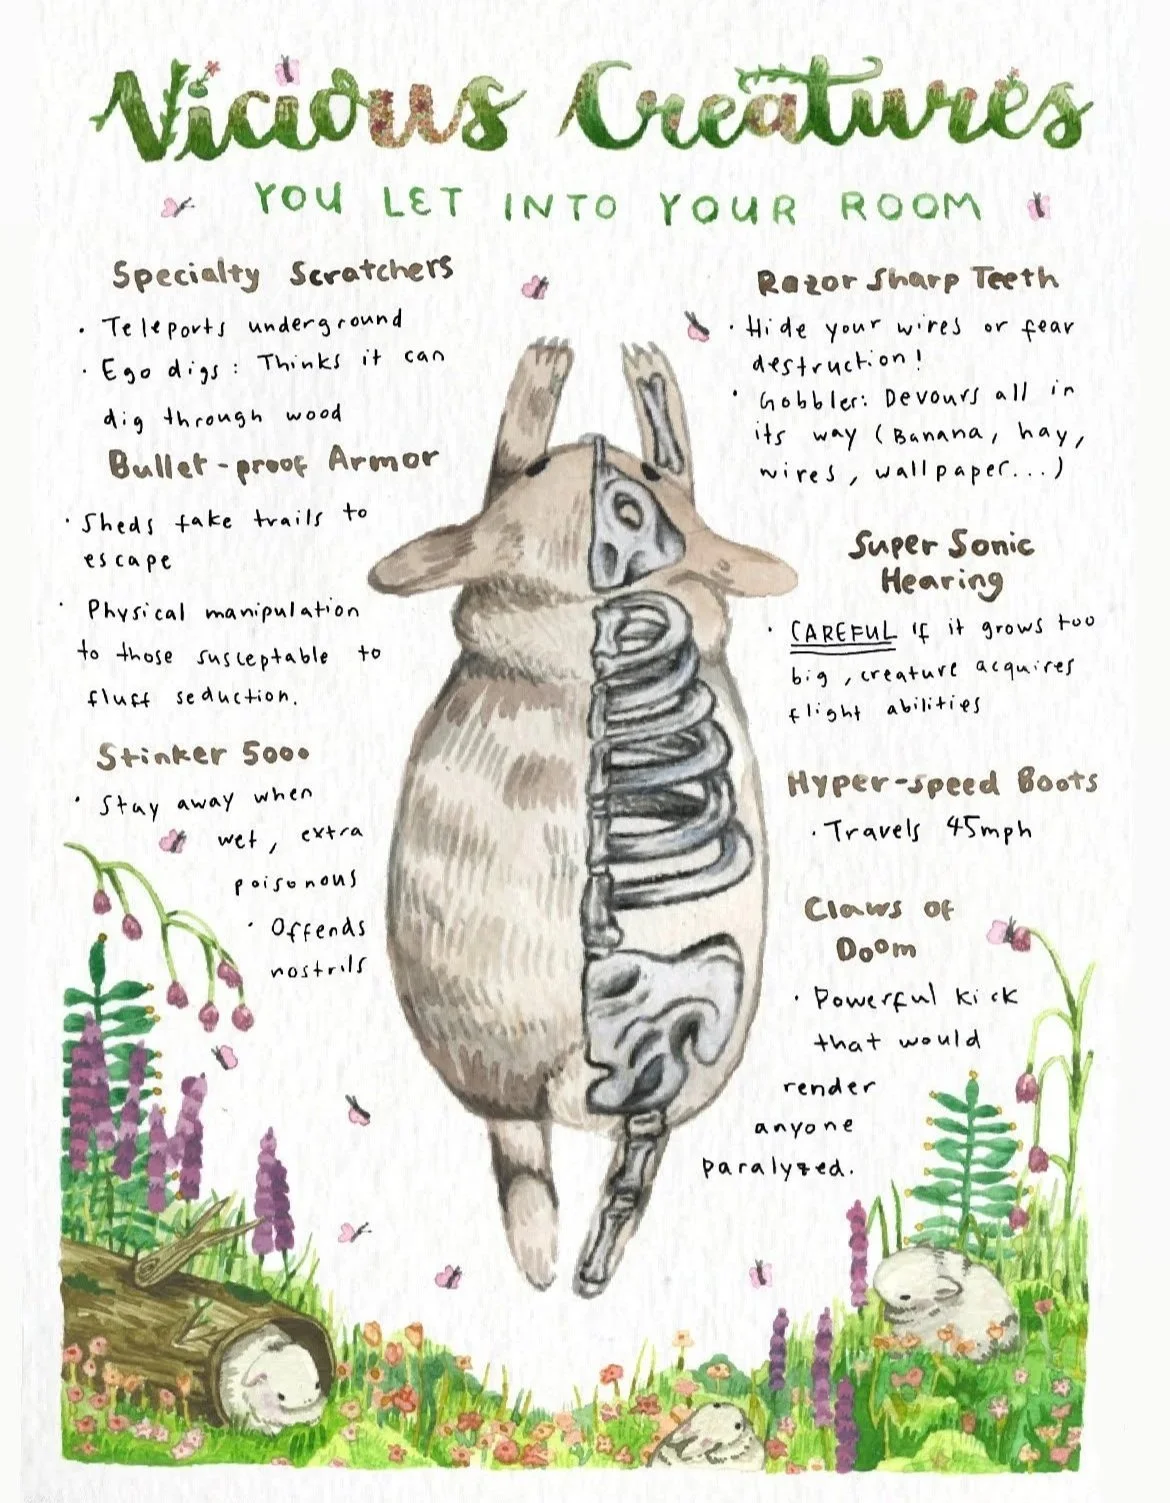 Vicious Creatures
YOU LET INTO YOUR ROOM
Specialty Scratchers
· Teleports underground
· Ego digs: Thinks it can
dig through wood
Bullet-proof Armor
· Sheds fake trails to
escape
· Physical manipulation
to those susceptable to
fluff seduction.
Stinker 5000
· Stay away when
wet, extra
poisonous
· Offends
nostrils
Razor Sharp Teeth
· Hide your wires or fear
destruction!
· Gobbler: Devours all in
its way (Banana, hay,
wires, wallpaper...)
Super Sonic
Hearing
· CAREFUL if it grows too
big, creature acquires
flight abilities
Hyper-speed Boots
· Travels 45mph
Claws of
Doom
· Powerful kick
that would
render
anyone
paralyzed.